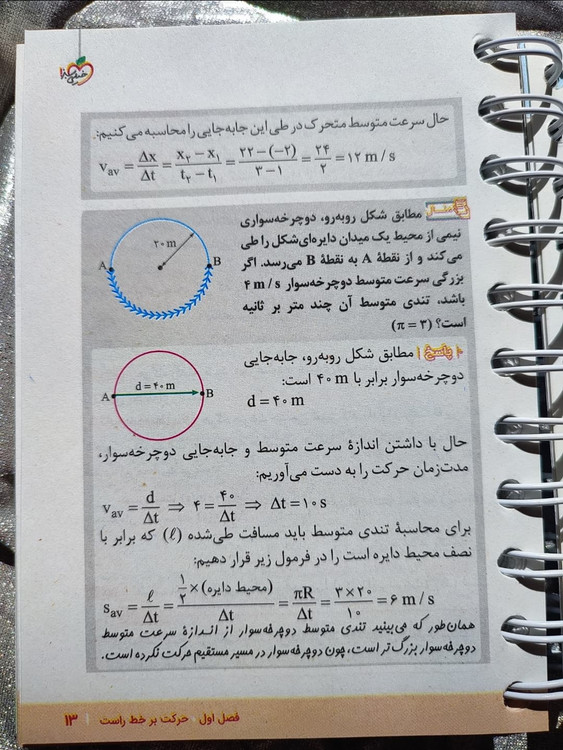 خیلی سبز
حال سرعت متوسط متحرک در طی این جابه‌جایی را محاسبه می‌کنیم:
v_av = Δx/Δt = (x₂ − x₁)/(t₂ − t₁) = (۲۲ − (−۲))/(۳ − ۱) = ۲۴/۲ = ۱۲ m/s
مثال مطابق شکل روبه‌رو، دوچرخه‌سواری
نیمی از محیط یک میدان دایره‌ای‌شکل را طی
می‌کند و از نقطهٔ A به نقطهٔ B می‌رسد. اگر
بزرگی سرعت متوسط دوچرخه‌سوار ۴ m/s
باشد، تندی متوسط آن چند متر بر ثانیه
است؟ (π = ۳)
۲۰ m
A
B
پاسخ مطابق شکل روبه‌رو، جابه‌جایی
دوچرخه‌سوار برابر با ۴۰ m است:
d = ۴۰ m
d = ۴۰ m
A
B
حال با داشتن اندازهٔ سرعت متوسط و جابه‌جایی دوچرخه‌سوار،
مدت‌زمان حرکت را به دست می‌آوریم:
v_av = d/Δt ⇒ ۴ = ۴۰/Δt ⇒ Δt = ۱۰ s
برای محاسبهٔ تندی متوسط باید مسافت طی‌شده (ℓ) که برابر با
نصف محیط دایره است را در فرمول زیر قرار دهیم:
s_av = ℓ/Δt = (۱/۲ × (محیط دایره))/Δt = πR/Δt = (۳ × ۲۰)/۱۰ = ۶ m/s
همان‌طور که می‌بینید تندی متوسط دوچرخه‌سوار از اندازهٔ سرعت متوسط
دوچرخه‌سوار بزرگ‌تر است، چون دوچرخه‌سوار در مسیر مستقیم حرکت نکرده است.
فصل اول حرکت بر خط راست | ۱۳